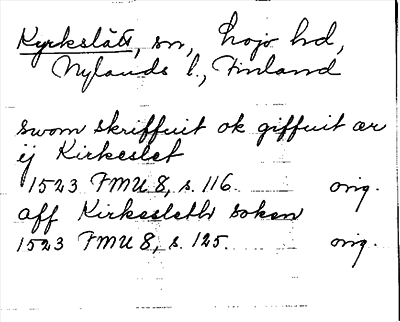 Kyrkslätt, sn, Lojo hd,
Nylands l., Finland
swom skriffuit ok giffuit ær
ij Kirkeslet
1523 FMU 8, s. 116. orig.
aff Kirkesleth soken
1523 FMU 8, s. 125. orig.